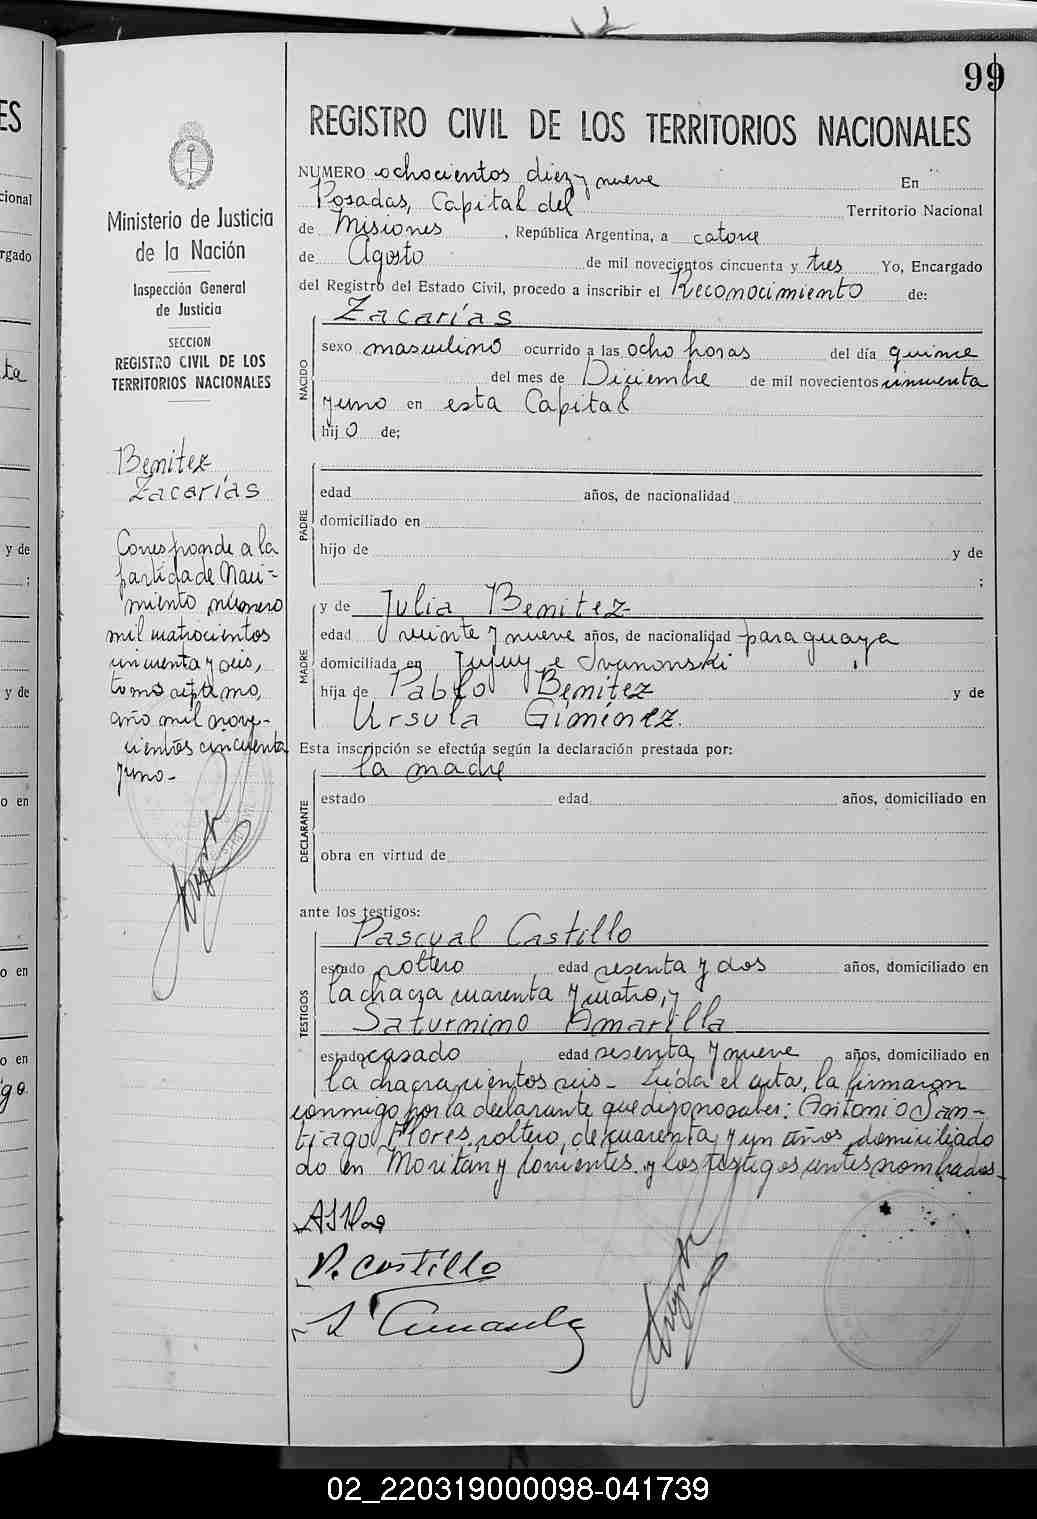 99
ES
cional
rgado
te
y de
;
y de
o en
o en
o en
go
Ministerio de Justicia
de la Nación
Inspección General
de Justicia
SECCION
REGISTRO CIVIL DE LOS
TERRITORIOS NACIONALES
Benitez
Zacarías
Corresponde a la
partida de Naci-
miento número
mil cuatrocientos
cincuenta y seis,
tomo séptimo,
año mil nove-
cientos cincuenta
y uno-
REGISTRO CIVIL DE LOS TERRITORIOS NACIONALES
NUMERO ochocientos diez y nueve En
Posadas, Capital del Territorio Nacional
de Misiones, República Argentina, a catorce
de Agosto de mil novecientos cincuenta y tres Yo, Encargado
del Registro del Estado Civil, procedo a inscribir el Reconocimiento de:
Zacarías
NACIDO
sexo masculino ocurrido a las ocho horas del día quince
del mes de Diciembre de mil novecientos cincuenta
y uno en esta Capital
hijo de;
PADRE
edad años, de nacionalidad
domiciliado en
hijo de y de
;
MADRE
y de Julia Benitez
edad veinte y nueve años, de nacionalidad paraguaya
domiciliada en Jujuy e Ivanonski
hija de Pablo Benitez y de
Ursula Giménez.
Esta inscripción se efectúa según la declaración prestada por:
la madre
DECLARANTE
estado edad años, domiciliado en
obra en virtud de
ante los testigos:
TESTIGOS
Pascual Castillo
estado soltero edad sesenta y dos años, domiciliado en
la chacra cuarenta y cuatro, y
Saturnino Amarilla
estado casado edad sesenta y nueve años, domiciliado en
la chacra cientos seis- Leída el acta, la firmaron
conmigo por la declarante que dijo no saber: Antonio San-
tiago Flores, soltero, de cuarenta y un años, domiciliado
do en Moritán y Corrientes. y los testigos antes nombrados-
P. Castillo
02_220319000098-041739